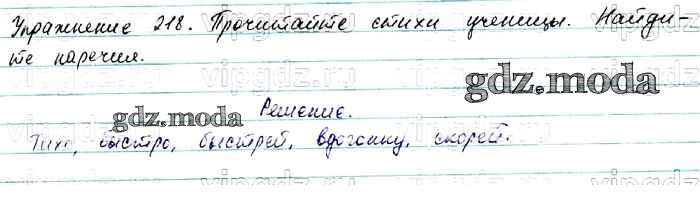 Упражнение 218. Прочитайте стихи ученицы. Найди-
те наречия.
gdz.moda
gdz.moda
Решение.
Тихо, быстро, быстрей, вдогонку, скорей.